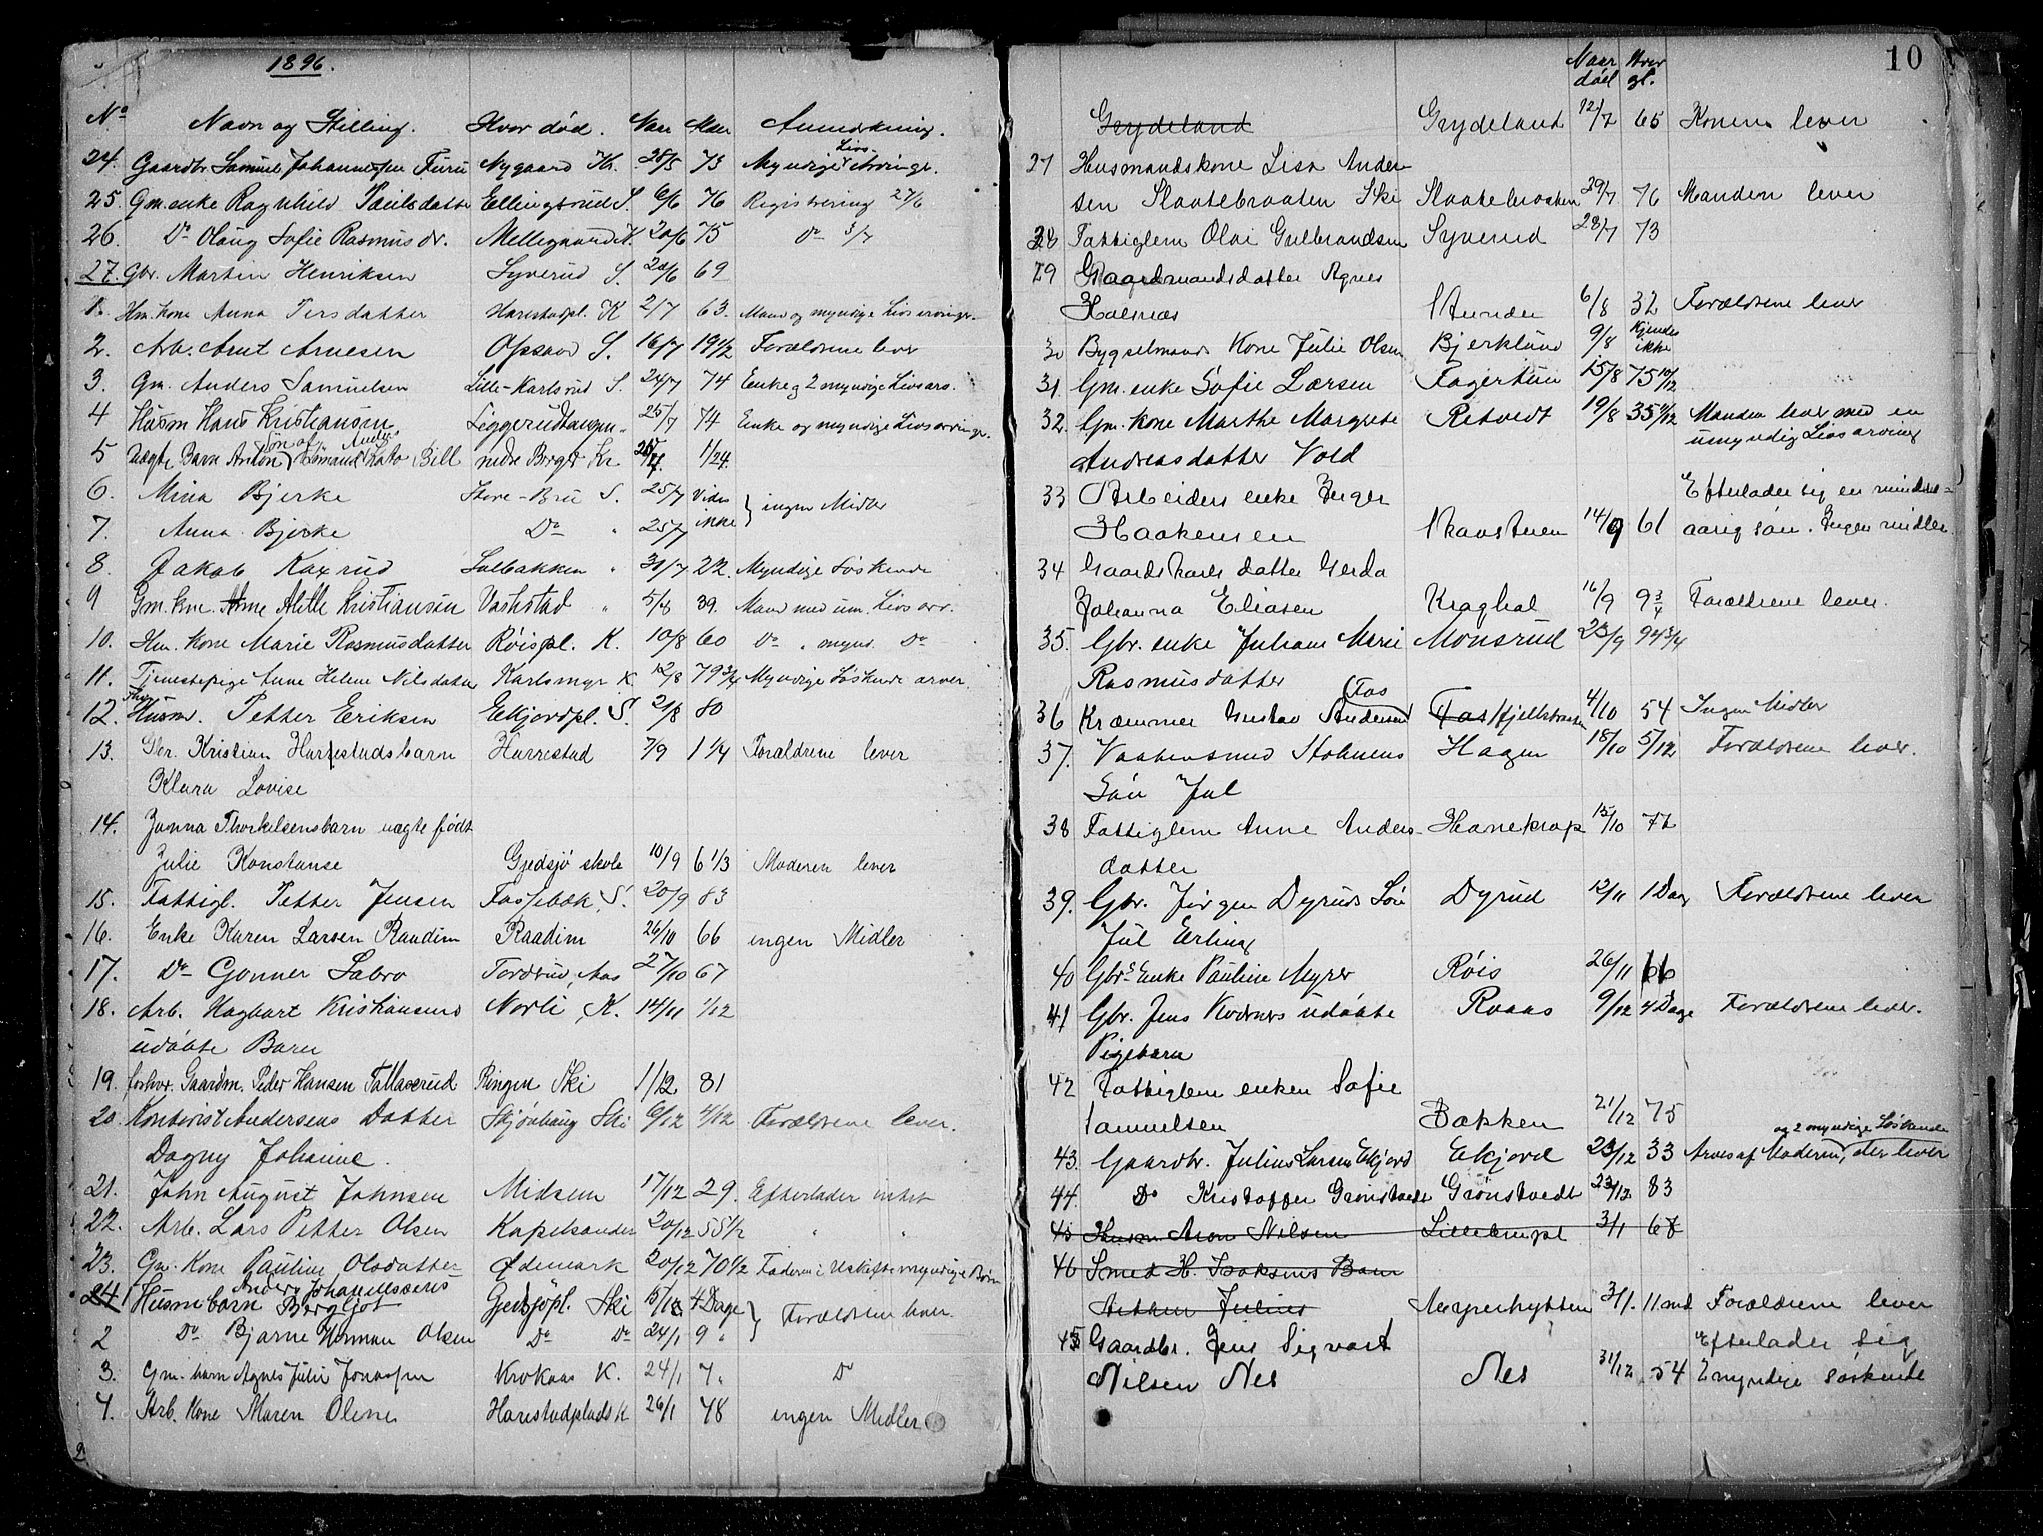 1896.
No Navn og Stilling. Hvor död. Naar Alder Anmerkning.
24. Gaardbr. Samuel Johannessen Furu Nygaard Kr. 28/5 73 Myndige Livs-Arvinger.
25. Gm. enke Ragnhild Paulsdatter Ellingsrud S. 6/6 76 Registrering 27/6
26. Do Olaug Sofie Rasmusdr. Mellegaard K. 20/6 75 Do 3/7
27. Gbr. Martin Henriksen Syverud S. 20/6 69
1. Hm. Kone Anna Persdatter Harestadpl. K 2/7 63. Mand og myndige Livsarvinger.
2. Arb. Arnt Arnesen Opsand S. 16/7 19 1/2 Forældrene lever
3. Gm. Anders Samuelsen Lille-Karlsrud S. 24/7 74 Enke og 2 myndige Livsarv.
4 Husm Hans Kristiansen, Liggerudhaugen 25/7 74 Enke og myndige Livsarvinger.
5 Uægte Barn Anton Søn af nedre Berger Kr 1/24.
6. Mina Bjerke Store-Bru S. 25/7 vides ikke } ingen Midler
7. Anna Bjerke Do " 25/7
8. Jakob Kaxrud Solbakken " 31/7 22. Myndige Söskende
9 Gm. kone. Alette Kristiansen Vaststad " 5/8 39. Mand med um. Livsarv.
10. Hm. Kone Marie Rasmusdatter Röispl. K. 10/8 60 Do " mynd. Do
11. Tjenestepige Anne Helene Nilsdatter Karlsmyr K. 12/8 79 3/4 Myndige Söskende arver.
12. Husm. Petter Eriksen Eekjordpl. S. 2/8 80
13. Gbr. Kristian Harrestadsbarn Harrestad 7/9 1 1/4 Forældrene lever
Klara Lovise
14. Janna Thorkelsensbarn uægte födt
Julie Konstanse Gjedsjö skole 10/9 6 1/3 Moderen lever
15. Fattigl. Petter Jensen Fosslibæk, S. 20/9 83
16. Enke Karen Larsen Raadim Raadim 26/10 66 ingen Midler
17. Do Gonner Sabro Tordrud, Aas 27/10 67
18. Arb. Hagbart Kristiansens Norli, K. 14/11 1/12
udöbte Barn
19. forhv. Gaardm. Peder Hansen Tallaksrud Ringen Ski 1/12 81
20. Kontorist Andersens Datter Skjönhaug Ski 6/12 4/12 Forældrene lever.
Dagny Johanne.
21. John August Johnsen Midsem 17/12 29. Efterlader intet
22. Arb. Lars Petter Olsen Kapelsanden 20/12 55 1/2 " "
23. Gm. Kone Pauline Olsdatter Ødemark 20/12 70 1/2 Faderen i Uskifte myndige Børn
Anders Johannessens
24 1 Husm barn Borgljot Gjedsjöpl. Ski 15/12 4 Dage } Forældrene lever.
2 Do Bjarne Herman Olsen Do Do 24/1 9 "
3. Gm. barn Agnes Julie Jonassen Krokaas K. 24/1 7 " Do
4. Arb. Kone Maren Oline Harestadplads K 26/1 48 ingen Midler
10
Naar död Hvor gl.
Grydeland Grydeland 12/7 65 Konen lever
27 Husmandskone Lisa Ander-
sen Slaatebraaten Ski Slaatebraaten 29/7 76 Manden lever
28 Fattiglem Olai Gulbrandsen Syverud 28/7 73
29 Gaardmandsdatter Agnes
Holsnæs 6/8 32 Forældrene lever
30 Bygselmands Kone Julie Olsen Bjerklund 9/8 Kjendes ikke
31. Gm. enke Sofie Larsen Fagertun 15/8 75 10/12
32. Gm. Kone Marthe Margrete Retvedt 19/8 35 11/12 Manden lever med en
umyndig Livsarving
Andreasdatter Vold
33 Arbeiders enke Inger Efterlader sig en mindre-
Haakensen 14/9 61 aarig sön. Ingen midler
34 Gaardskarls datter Gerda
Johanna Eliasen Kraghol 16/9 9 3/4 Forældrene lever.
35. Gbr. enke Juliane Marie Monsrud 23/9 94 3/4
Rasmusdatter
36 Kræmmer Gustav Andersen (Fos Fos 4/10 54 Ingen Midler
37. Vaabensmed Holmens Hagen 18/10 5/12 Forældrene lever.
Sön Jul
38 Fattiglem Anne Anders- Hanekrap 15/10 77
datter
39. Gbr. Jörgen Dyruds Sön Dyrud 12/11 1 Dag Forældrene lever
Jul Erling
40 Gbrs Enke Pauline Myrer Röis 26/11 66
41 Gbr. Jens udöbte Roaas 9/12 4 Dage Forældrene lever.
Pigebarn
42 Fattiglem enken Sofie
Samuelsen Bakken 21/12 75
og 2 myndige Söskende
43. Gaardbr. Julius Larsen Ekjord Ekjord 23/12 33 Arves af Moderen, der lever
44. Do Kristoffer Grönstvedt Grönstvedt 23/12 83
45 Husm. Aron Nilsen Lillebrupl 3/1 67
46 Smed H. Isaksens Barn
Arthur Julius Meyerhytten 3/1. 11 md Forældrene lever
45 Gaardbr. Jens Sigvart Efterlader sig
Nilsen Nes Nes 31/12 54 2 myndige söskende